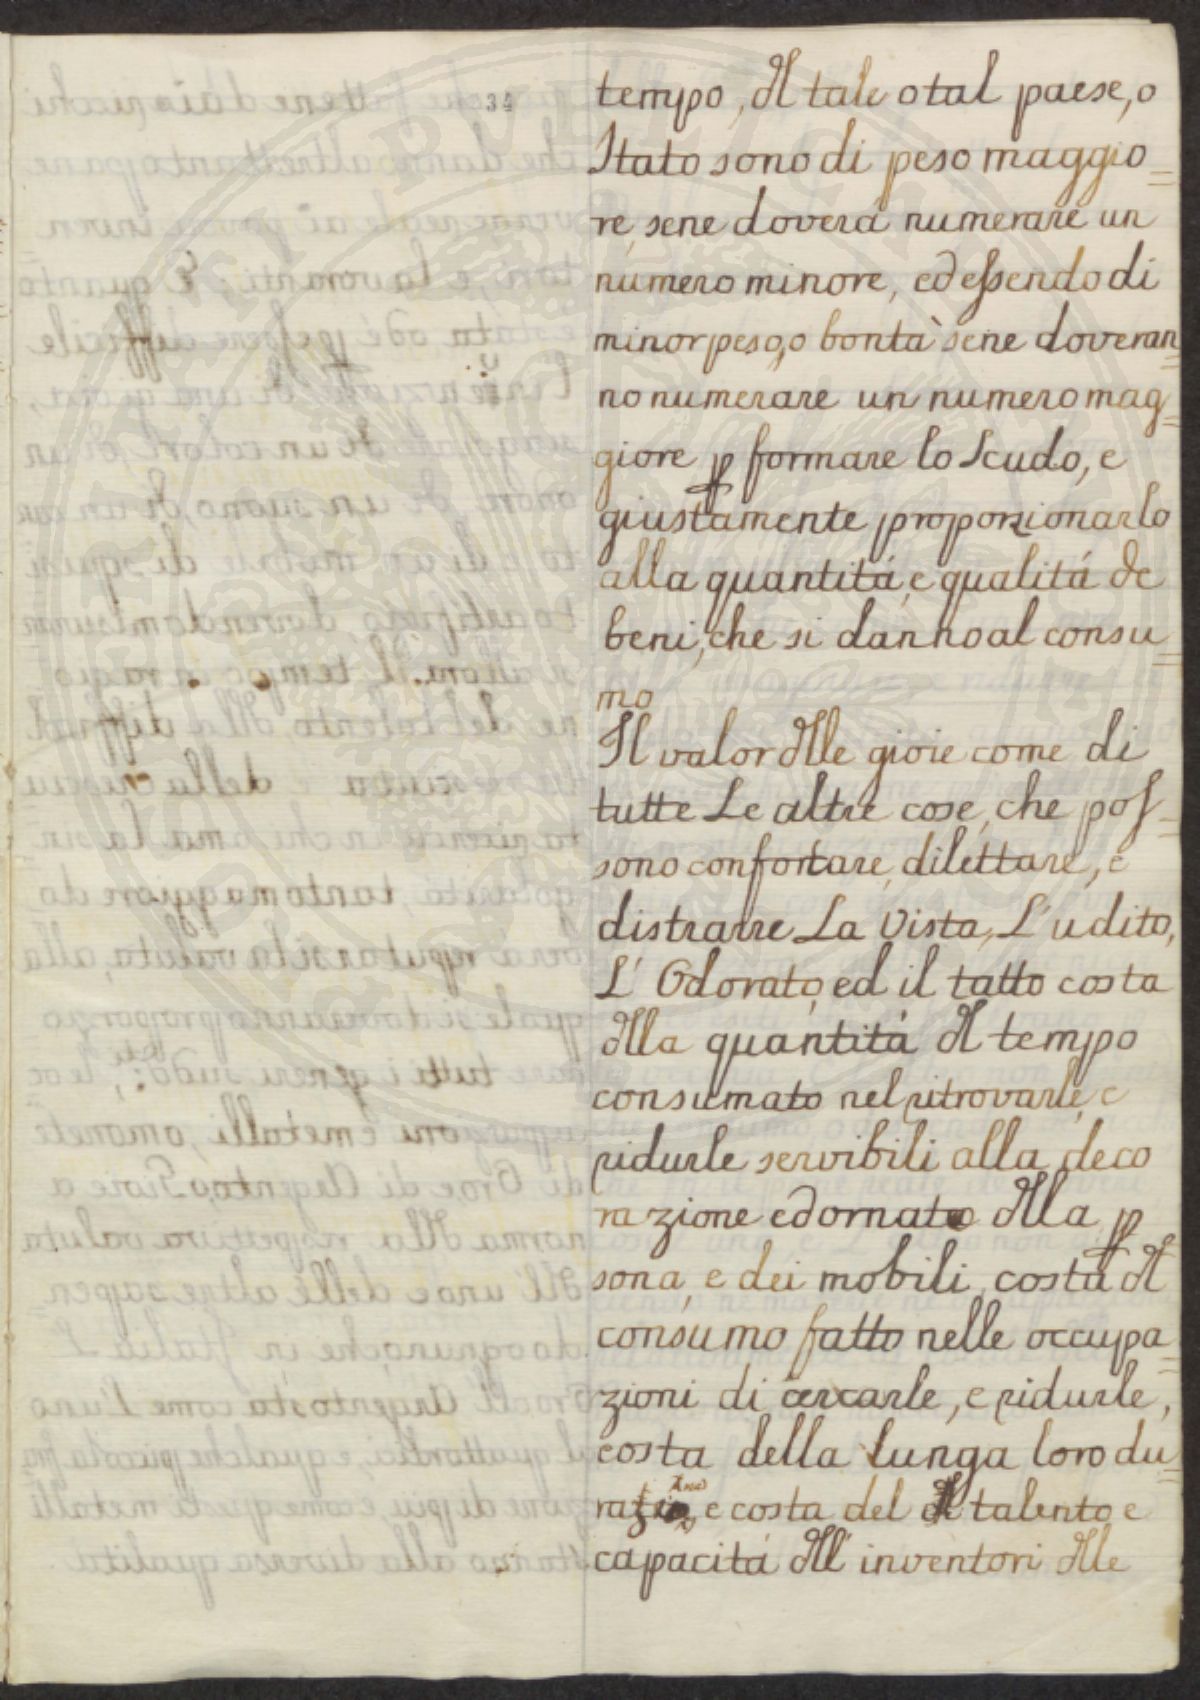 34
tempo, dl tale o tal paese, o
Stato sono di peso maggio=
re, sene doverá numerare un
numero minore, ed essendo di
minor peso, o bontà sene doveran=
no numerare un numero mag=
giore p formare lo Scudo, e
giustamente proporzionarlo
alla quantitá, e qualitá de
beni, che si danno al consu=
mo
Il valor dlle gioie come di
tutte Le altre cose, che pos=
sono confortare, dilettare, e
distrarre La Vista, L'udito,
L' Odorato, ed il tatto costa
dlla quantitá dl tempo
consumato nel ritrovarle, e
ridurle servibili alla deco
razione ed ornato dlla p
sona, e dei mobili, costa dl
consumo fatto nelle occupa=
zioni di cercarle, e ridurle,
costa della lunga loro du=
e costa del talento e
capacitá dll' inventori dlle